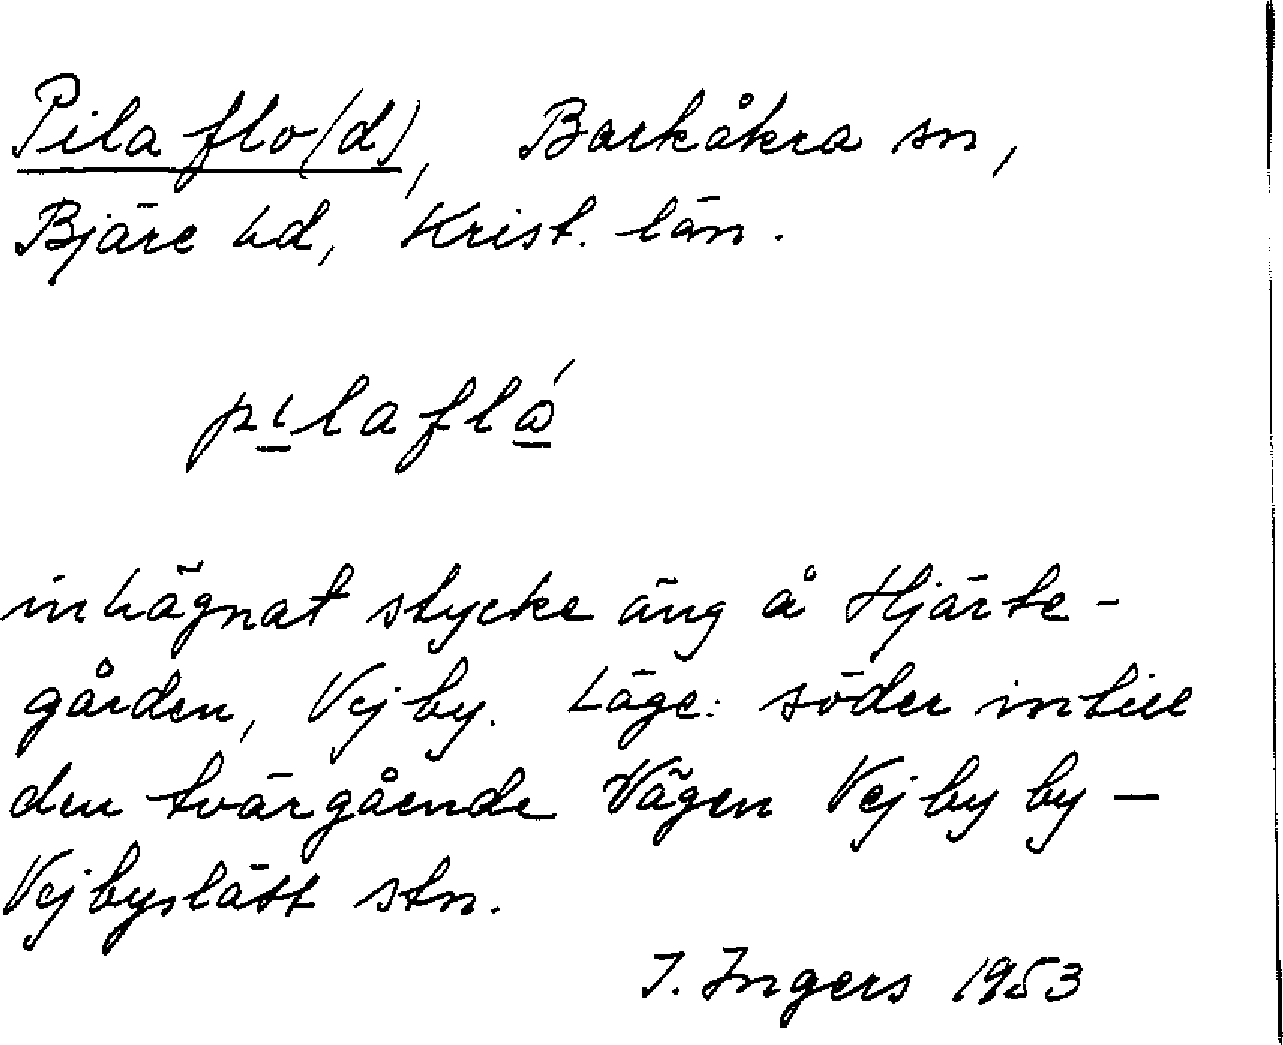 Pila flo(d), Barkåkra sn,
Bjäre hd, Krist. län.
pı̲laflώ̲
inhägnat stycke äng å Hjärte-
gården, Vejby. Läge: söder intill
den tvärgående Vägen Vejby by —
Vejbyslätt stn.
I. Ingers 1953